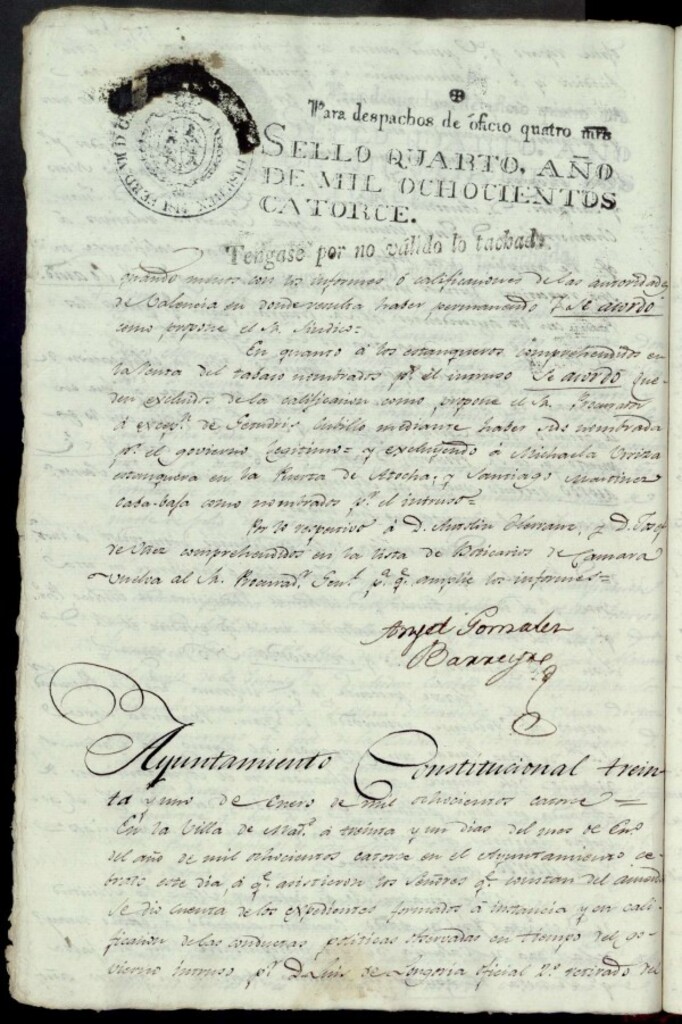 Para despachos de oficio quatro mrs
SELLO QUARTO, AÑO
DE MIL OCHOCIENTOS
CATORCE.
Tengase por no válido lo tachado.
quando menos con los informes ó calificaciones de las autoridades
de Valencia en donde resulta haber permanecido Y Se acordó
como propone el Sr. Sindico=
En quanto á los estanqueros comprehendidos en
la Renta del tabaco nombrados pr. el intruso Se acordó que-
den excluidos de la calificacion como propone el Sr. Procurador
á excepn. de Cubillo mediante haber sido nombrada
pr. el govierno legitimo= y excluyendo á Michaela Urriza
estanquera en la Puerta de Atocha, y Santiago Martinez
caba-baja como nombrados pr. el intruso=
Por lo respectivo á D. Herranz, y D. Josef
de comprehendidos en la lista de Boticarios de Camara
vuelva al Sr. Procurad. Genl. pa. q. amplie los informes=
Angel Gonzalez
Barreyro
Ayuntamiento Constitucional trein-
ta y uno de Enero de mil ochocientos catorce=
En la Villa de Mad. á treinta y un dias del mes de Eno.
del año de mil ochocientos catorce en el Ayuntamiento ce-
brado este dia á q. asistieron los Señores q. constan del acuerdo
Se dio cuenta de los expedientes formados á instancia y en cali-
ficacion de las conductas politicas observadas en tiempo del go-
vierno intruso pr. D. Luis de Longoria oficial 2o. retirado del